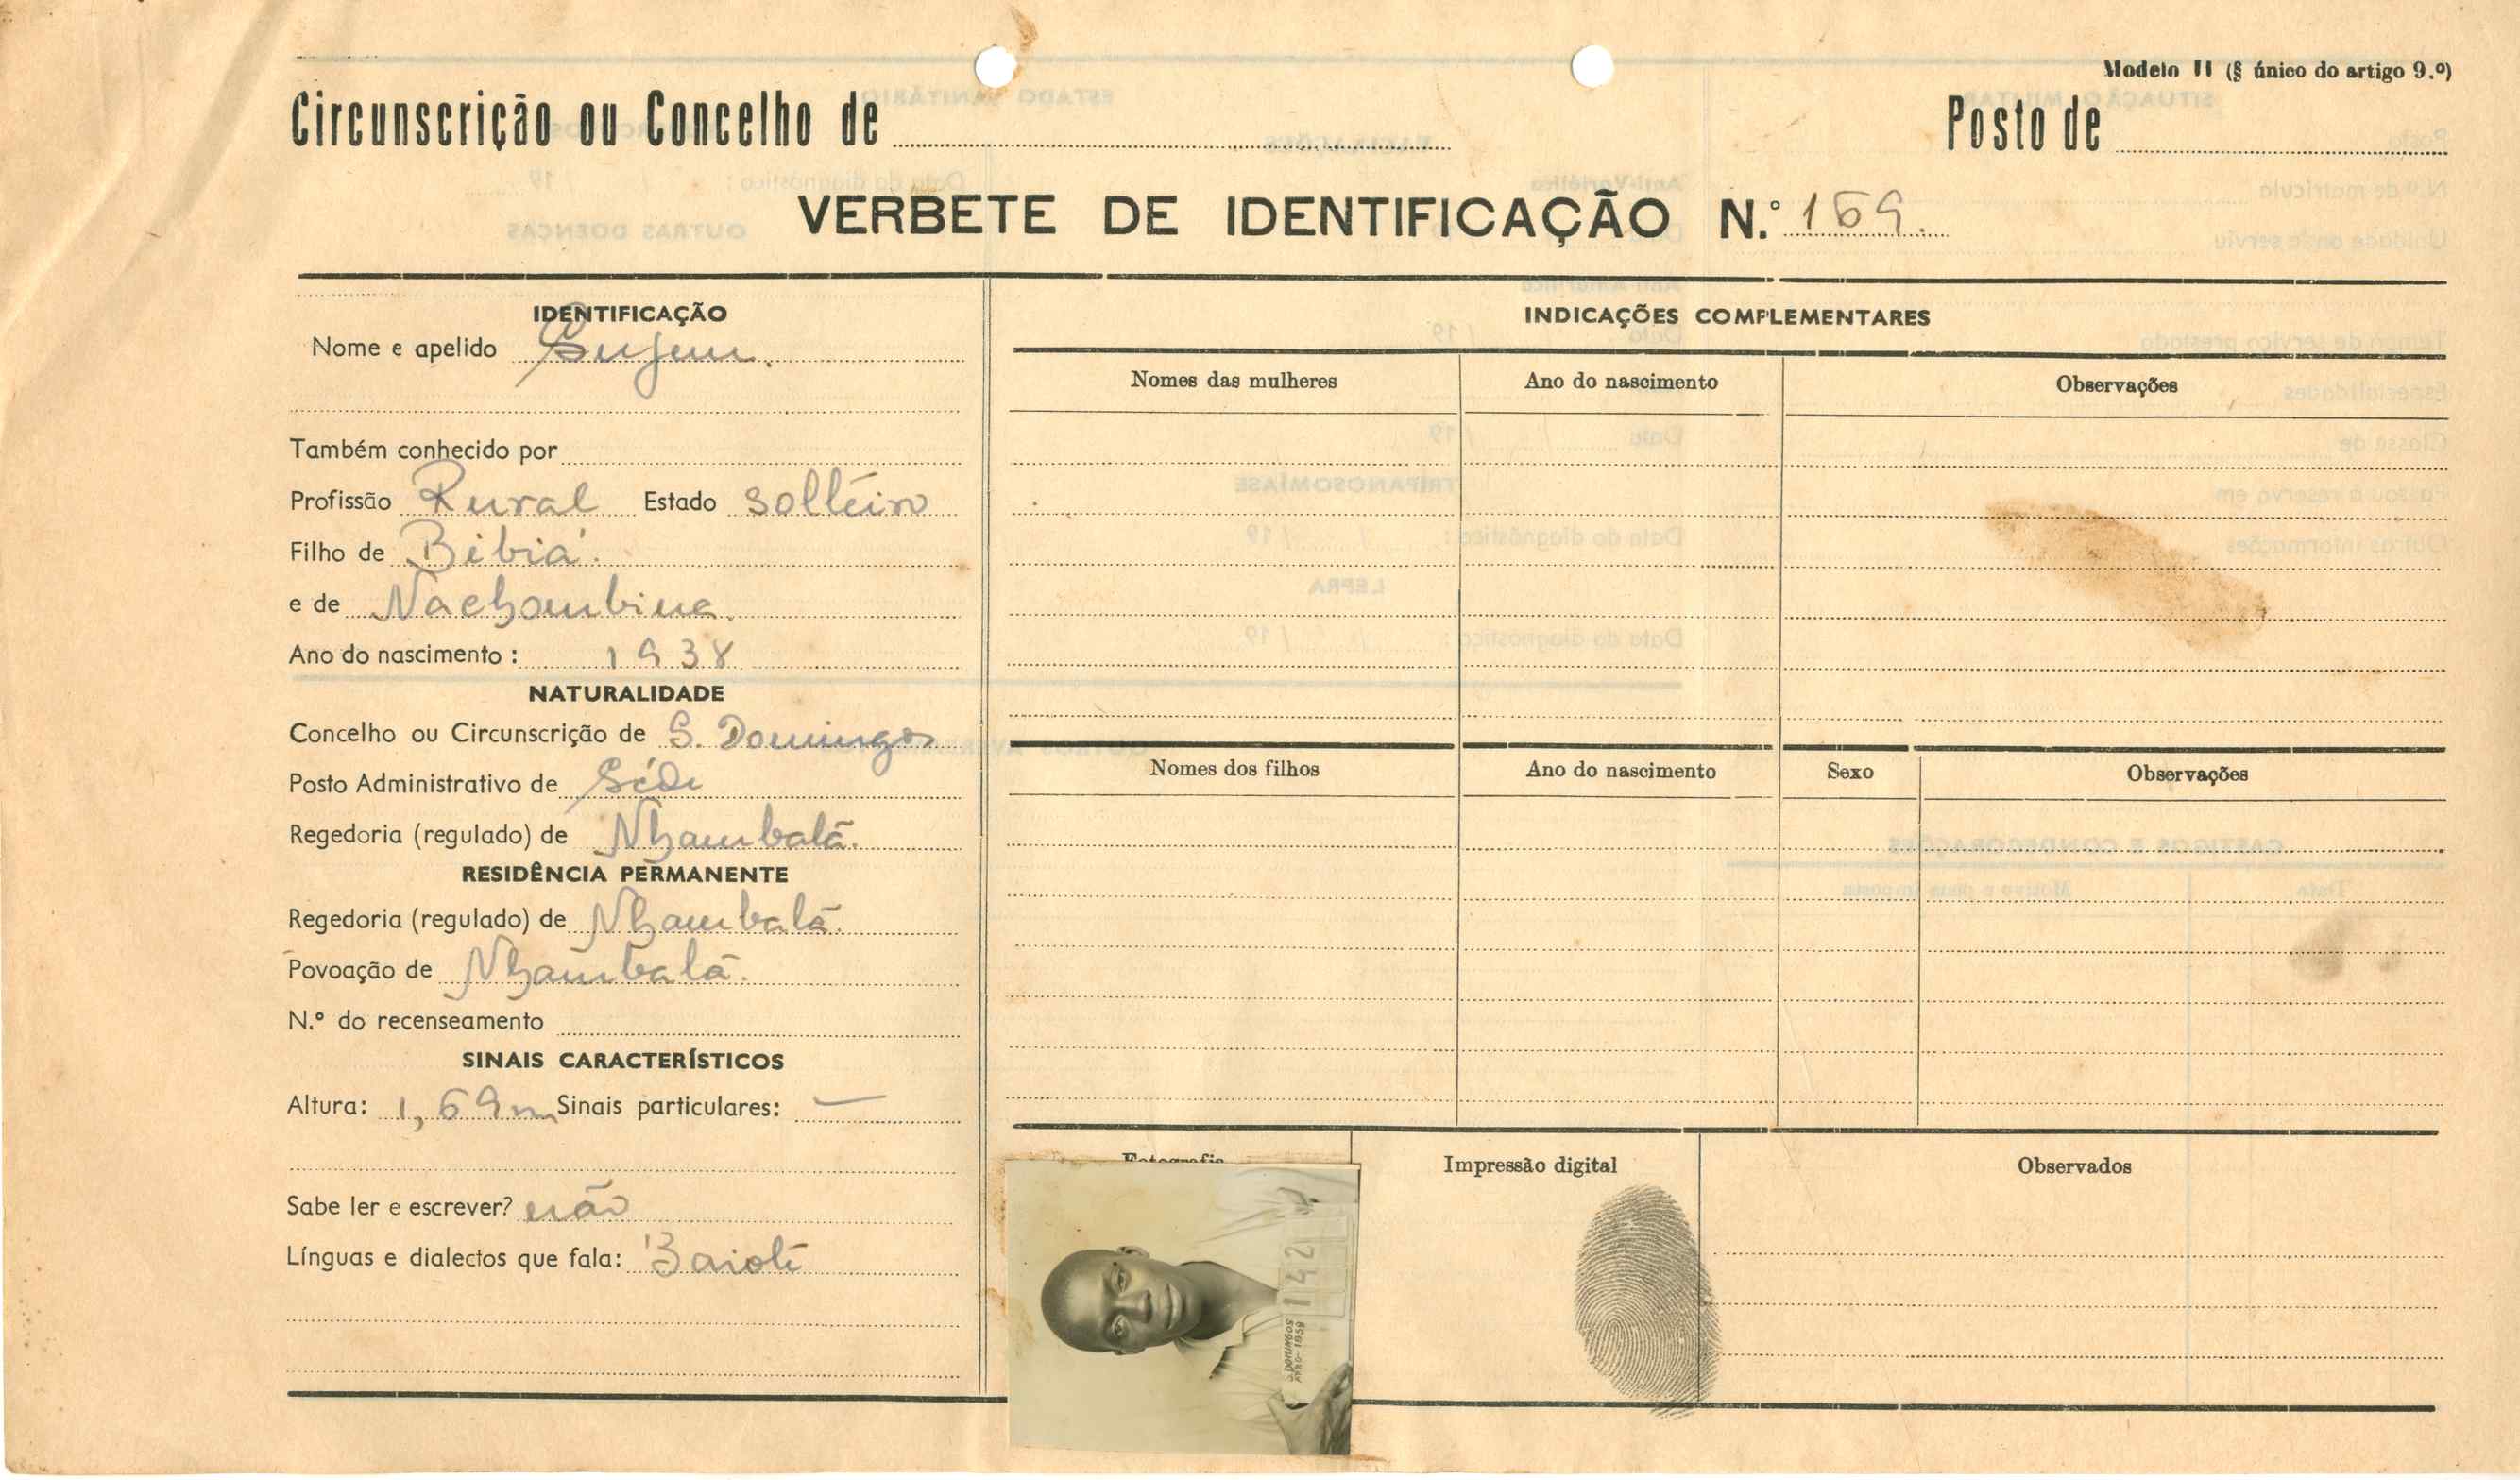 Modelo II (§ único do artigo 9.º)
Circunscrição ou Concelho de
Posto de
VERBETE DE IDENTIFICAÇÃO N.º 169.
IDENTIFICAÇÃO
Nome e apelido
Também conhecido por
Profissão Rural Estado solteiro
Filho de Bibiá.
e de Nachambina.
Ano do nascimento : 1938
NATURALIDADE
Concelho ou Circunscrição de S. Domingos
Posto Administrativo de Séde
Regedoria (regulado) de Nhambalã.
RESIDÊNCIA PERMANENTE
Regedoria (regulado) de Nhambalã.
Povoação de Nhambalã.
N.º do recenseamento
SINAIS CARACTERÍSTICOS
Altura: 1,69m Sinais particulares: —
Sabe ler e escrever? não
Línguas e dialectos que fala: Baiote
INDICAÇÕES COMPLEMENTARES
Nomes das mulheres Ano do nascimento Observações
Nomes dos filhos Ano do nascimento Sexo Observações
Fotografia Impressão digital Observados
142
S.DOMINGOS
ANO-1959